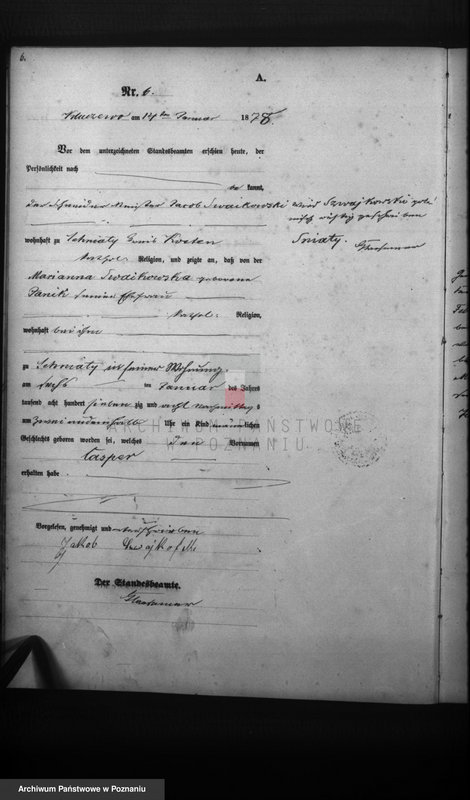 6.
A.
Nr. 6.
am 14ten Januar 1878.
Vor dem unterzeichneten Standesbeamten erschien heute, der
Persönlichkeit nach
be kannt,
der Schneider Meister Jacob Swaikowski wird Szwajkowski pol=
nisch richtig geschrieben
wohnhaft zu Schniaty Kreis Kosten Sniaty.
kathol. Religion, und zeigte an, daß von der
Marianna Swaikowska geborene
Panik seiner Ehefrau
kathol. Religion,
wohnhaft bei ihm
zu Schniaty in seiner Wohnung,
am sechs ten Januar des Jahres
tausend acht hundert sieben zig und acht Nachmittag s
um zwei und ein halb Uhr ein Kind männlichen
Geschlechts geboren worden sei, welches den Vornamen
Casper
erhalten habe
Vorgelesen, genehmigt und unterschrieben
Jakob
Der Standesbeamte.
ARCHIWUM PAŃSTWOWE
W POZNANIU
Archiwum Państwowe w Poznaniu